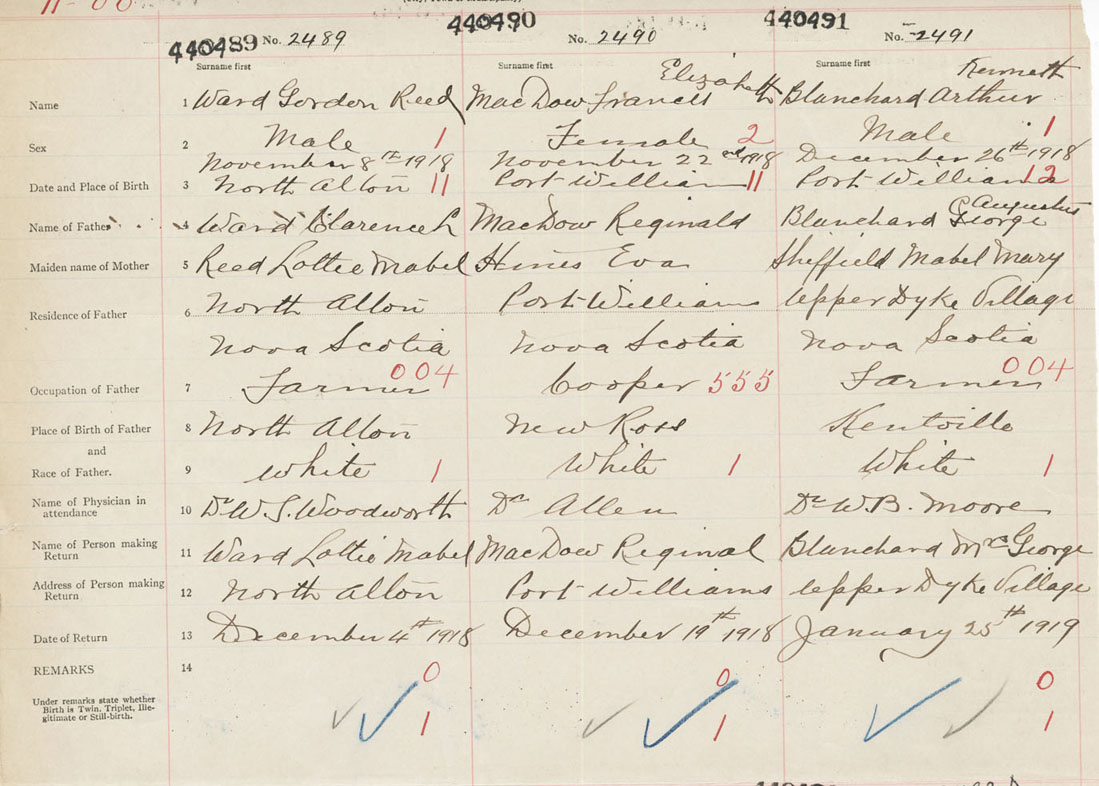 440489 No. 2489 440490 No. 2490 440491 No. 2491
Surname first Surname first Surname first
Elizabeth Kenneth
Name 1 Ward Gordon Reed MacDow Francis Blanchard Arthur
Sex 2 Male 1 Female 2 Male 1
November 8th 1918 November 22nd 1918 December 26th 1918
Date and Place of Birth 3 North Alton 11 Port Williams 11 Port Williams 12
Augustus
Name of Father 4 Ward Clarence L MacDow Reginald Blanchard George
Maiden name of Mother 5 Reed Lottie Mabel Hines Eva Sheffield Mabel Mary
Residence of Father 6 North Alton Port Williams Upper Dyke Village
Nova Scotia Nova Scotia Nova Scotia
004 004
Occupation of Father 7 Farmer Cooper 555 Farmer
Place of Birth of Father 8 North Alton New Ross Kentville
and
Race of Father. 9 White 1 White 1 White 1
Name of Physician in
attendance 10 Dr W.S. Woodworth Dr Allen Dr W.B. Moore
Name of Person making
Return 11 Ward Lottie Mabel MacDow Reginal Blanchard Mrs George
Address of Person making
Return 12 North Alton Port Williams Upper Dyke Village
Date of Return 13 December 4th 1918 December 19th 1918 January 25th 1919
REMARKS 14 0 0 0
Under remarks state whether
Birth is Twin, Triplet, Ille-
gitimate or Still-birth. 1 1 1